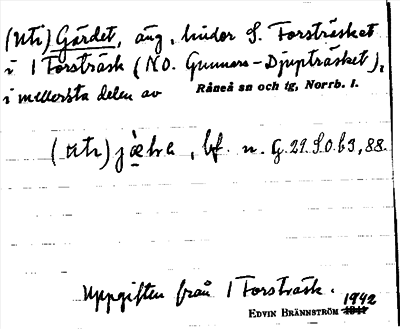 (uti) Gärdet, äng, S. Forsträsket
i 1 Forsträsk (NO. Gunnars-Djupträsket),
i mellersta delen av Råneå sn och tg, Norrb. l.
(uti) bf. n. G. 29. S. 063, 88.
Uppgiften från 1 Forsträsk.
1942
EDVIN BRÄNNSTRÖM 1941